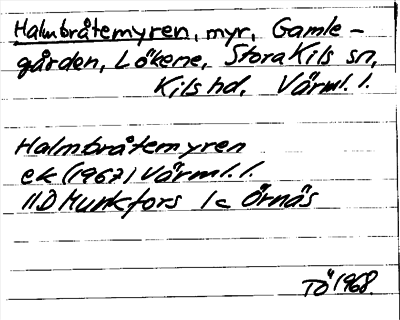 Halmbråtemyren, myr, Gamle-
gården, Lökene, Stora Kils sn,
Kils hd, Värml. l.
Halmbråtemyren
ek (1967) Värml. l.
11D Munkfors 1c Örnäs
TÖ 1968.